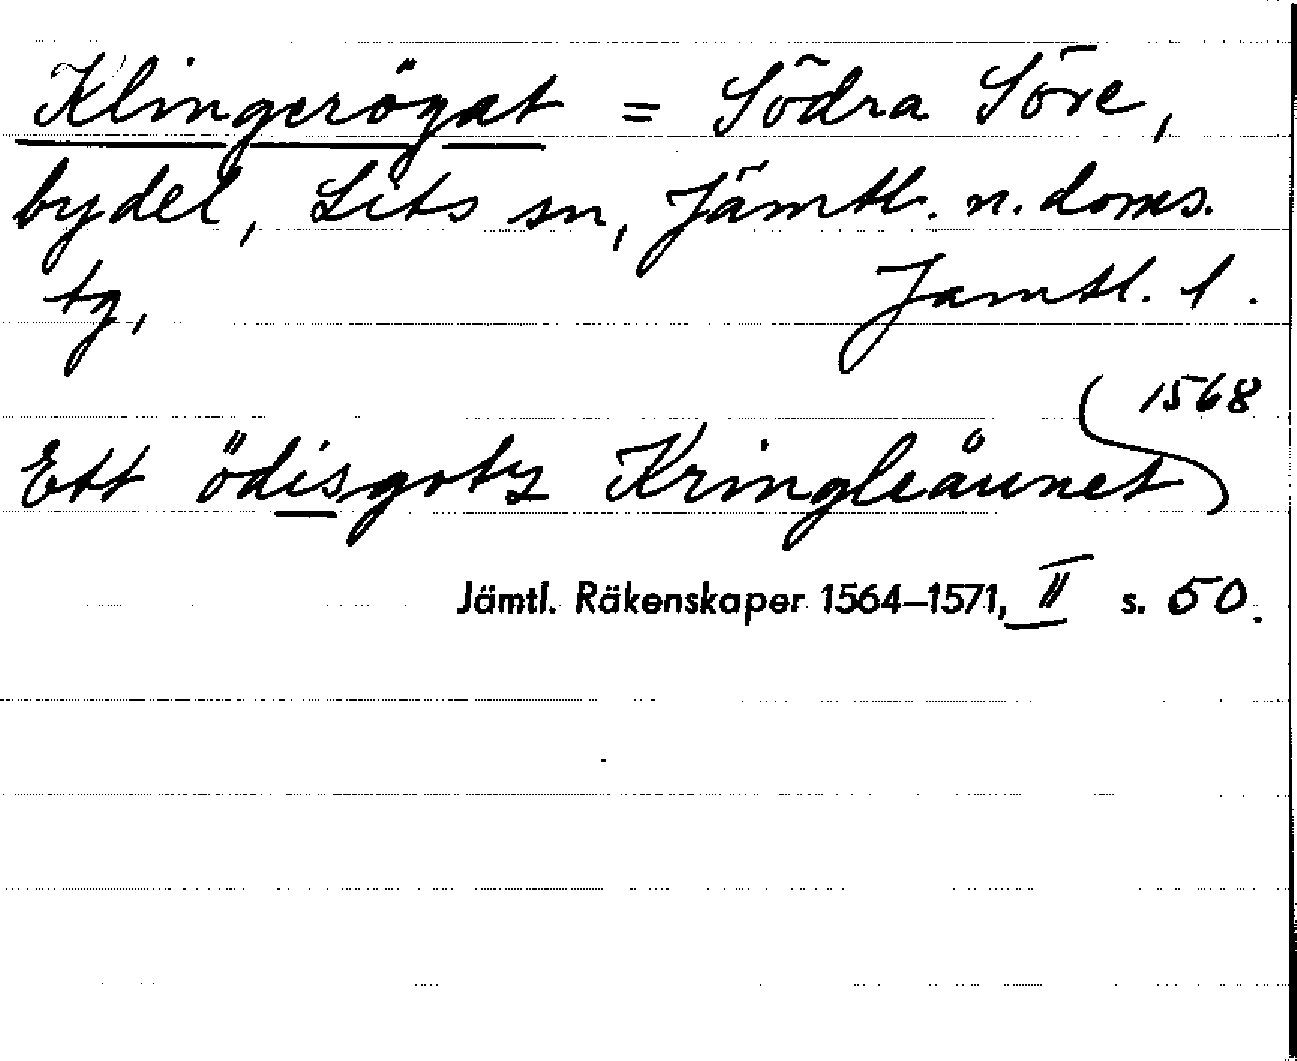 Klingerögat = Södra Söre,
bydel, Lits sn, Jämtl. n. doms.
tg, Jämtl. l.
1568
Ett ödisgotz Kringleåunet
Jämtl. Räkenskaper 1564–1571, II s. 50.